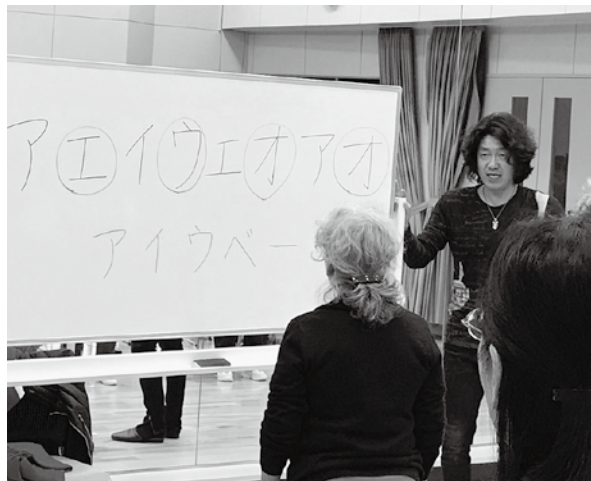 アエイウエオアオ
アイウベー